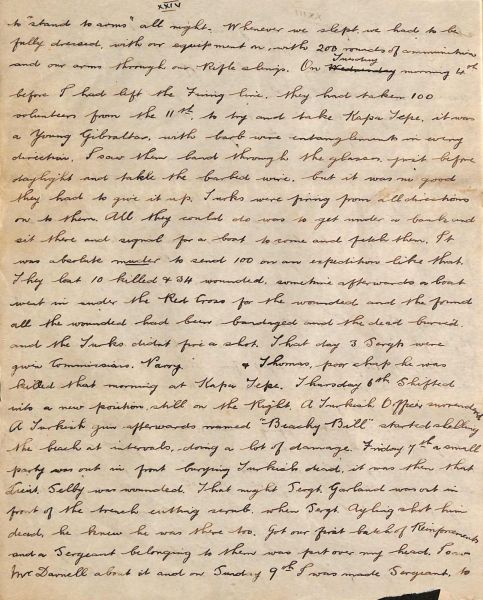 XXIV
to "stand to arms" all night. Whenever we slept, we had to be
fully dressed, with our equipment on, with 200 rounds of ammunition
and our arms through our Rifle slings. On Wednesday Tuesday morning 4th
before I had left the Firing line, they had taken 100
volunteers from the 11th to try and take Kapa Tepe, it was
a Young Gibraltar, with barb wire entanglements in every
direction. I saw them land through the glasses, just before
daylight and tackle the barbed wire, but it was no good
they had to give it up, Turks were firing from all directions
on to them. All they could do was to get under a bank and
sit there and signal for a boat to come and fetch them. It
was absolute murder to send 100 on an expedition like that.
They lost 10 killed & 34 wounded, sometime afterwards a boat
went in under the Red Cross for the wounded and the found
all the wounded had been bandaged and the dead buried,
and the Turks didnt fire a shot. That day 3 Sergts were
given Commissions. & Thomas, poor chap he was
killed that morning at Kapa Tepe. Thursday 6th Shifted
into a new position, still on the Right. A Turkish Officer surrendered
A Turkish gun afterwards named "Beachy Bill" started shelling
the beach at intervals, doing a lot of damage. Friday 7th a small
party was out in front burying Turkish dead, it was then that
Lieut. Selby was wounded. That night Sergt. Garland was out in
front of the trench cutting scrub, when Sergt. shot him
dead, he knew he was there too. Got our first batch of Reinforcements
and a Sergeant belonging to them was put over my head. Saw
Mr Darnell about it and on Sunday 9th I was made Sergeant, to